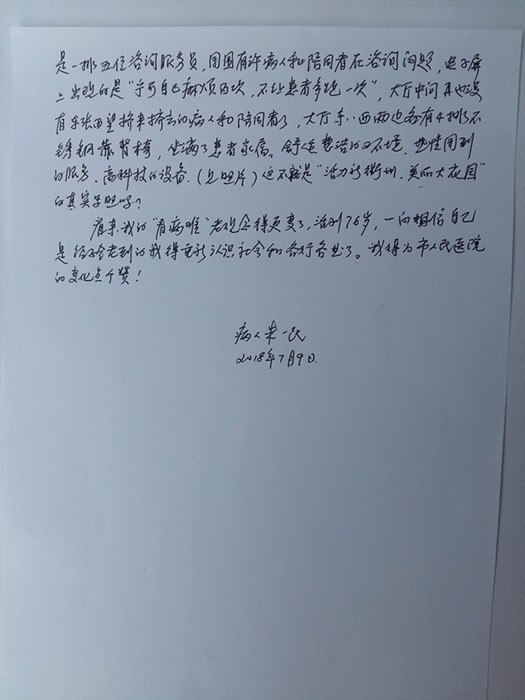 是一排五位咨询服务员，周围有许病人和陪同者在咨询问题，电子屏
上出现的是“宁可自己麻烦百次，不让患者多跑一次”，大厅中间再也没
有东张西望挤来挤去的病人和陪同者了，大厅东、西两边各有4排不
锈钢靠背椅，坐满了患者家属。舒适整洁的环境、热情周到
的服务、高科技的设备.（见照片）这不就是“活力新衢州，美丽大花园”
的真实写照吗？
看来我的“看病难”老观念得更变了，活到76岁，一向相信自己
是 的我得重新认识社会和各行各业了。我得为市人民医院
的变化点个赞！
病人朱一民
2018年7月9日.